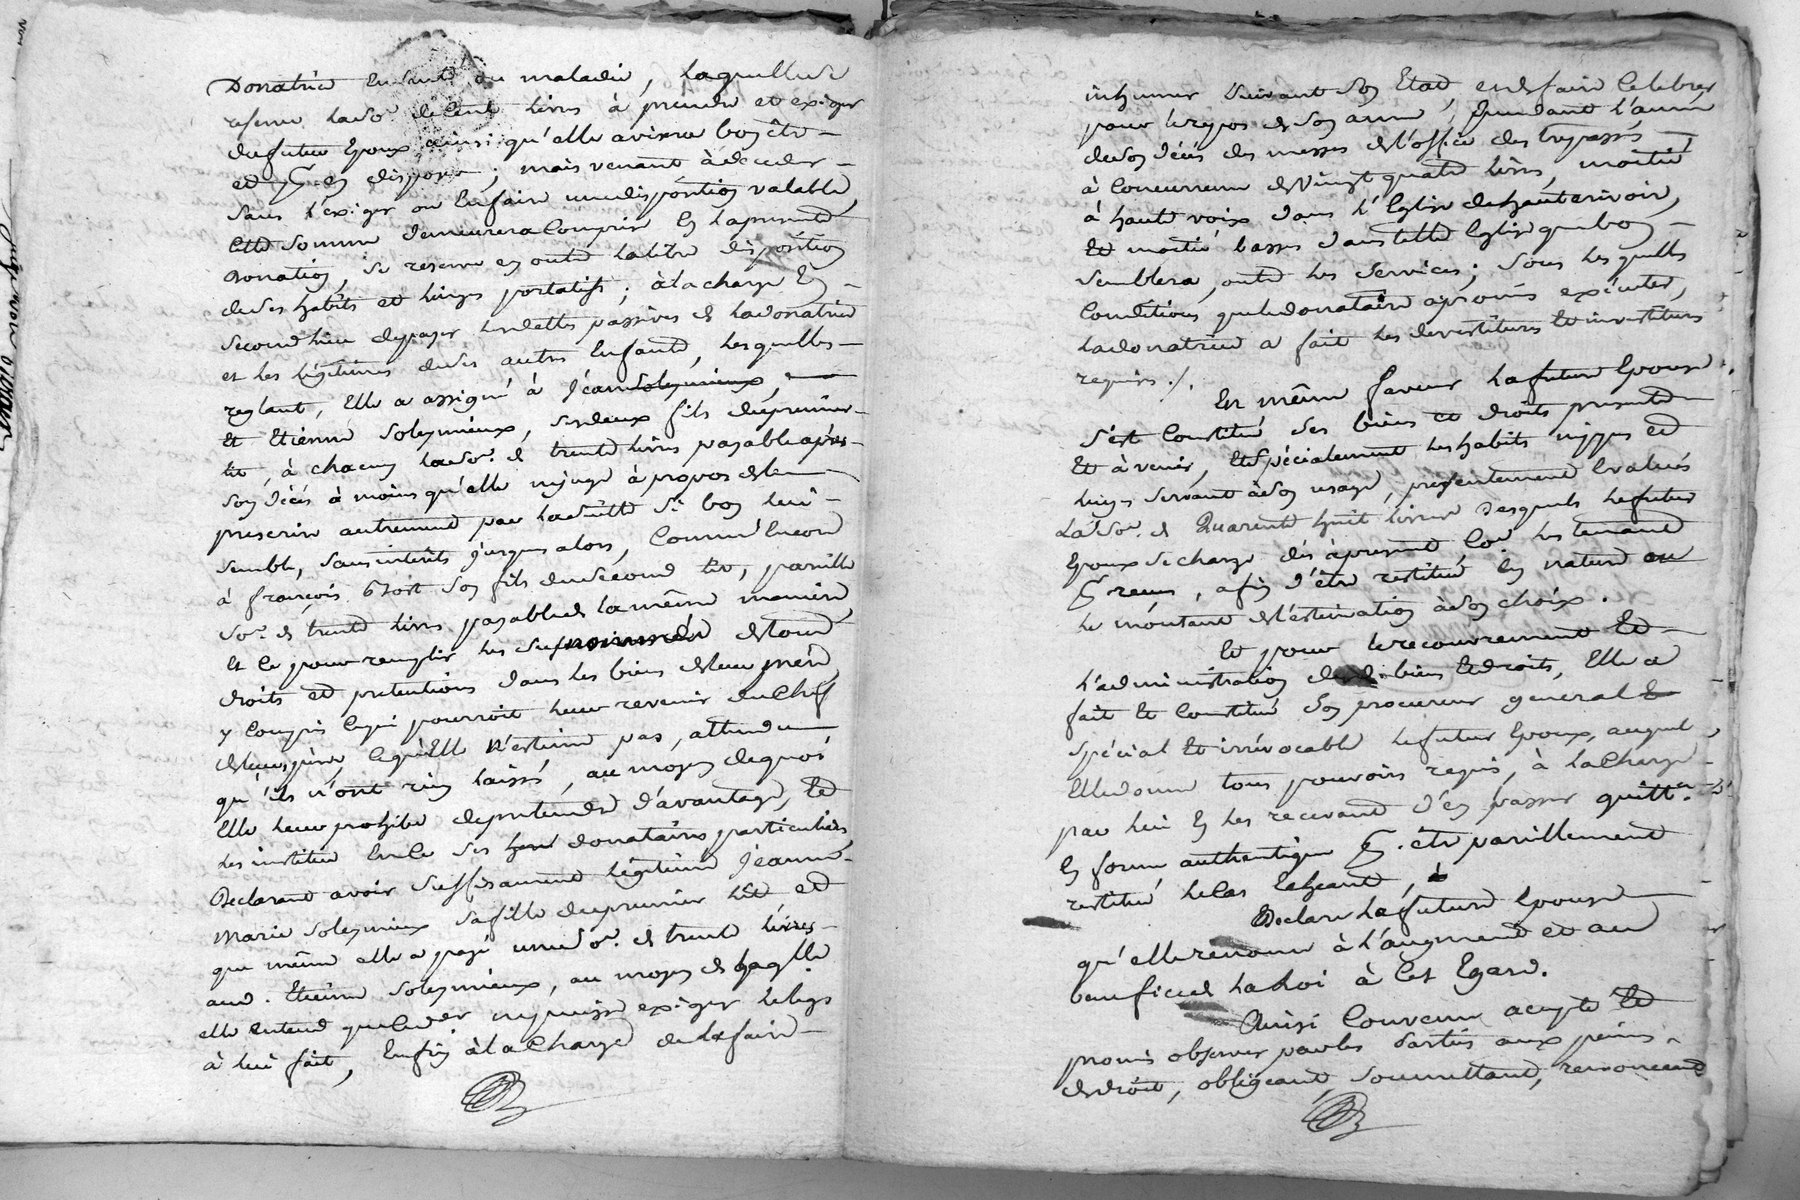 Donatrice en santé ou maladie, laquelle se
reserve la so.e de cent livres à prendre et exiger
du futur Epoux ainsi qu'elle avisera bon être
et en disposer ; mais venant à deceder
sans l'exiger ou en faire une disposition valable,
cette somme demeurera comprise en la presente
donation, se reserve en outre la libre disposition
de ses habits et linges portatifs ; à la charge en
second lieu de payer les dettes passives de la donatrice
et les légitimes de ses autres Enfants, lesquelles
reglant, Elle a assigné à Jean Soleymieux,
et Etienne Soleymieux, ses deux fils du premier
lit, à chacun la so.e de trente livres payable après
son décés à moins qu'elle ne juge à propos de le
prescrire autrement par la suite si bon lui
semble, sans interêts jusques alors, comme encore
à françois son fils du second lit, pareille
so.e de trente livres payable de la même manière
et ce pour remplir les susnommés de tous
droits et pretentions dans les biens de leur mère
y compris ce qui pourroit leur revenir du chef
de leurs père, ce qu'elle n'estime pas, attendu
qu'ils n'ont rien laissé, au moyen de quoi
Elle leur prohibe de pretendre d'avantage, et
les institue en ce ses donataires particuliers
Declarant avoir suffisament légitimé Jeanne
Marie Soleymieux sa fille du premier lit et
que même elle a payé une so.e de trente livres
aud. Etienne Soleymieux, au moyen de laquelle
elle entend que ce der ne puisse exiger le legs
à lui fait, Enfin à la charge de la faire
inhumer suivant son Etat et de faire celebrer
pour le repos de son ame, pendant l'année
de son décés des messes et l'office des trepassés
à concurrence de vingt quatre livres, moitié
à haute voix dans l'Eglise de hauterivoir,
et moitié basses dans telle Eglise que bon
semblera, outre les services ; sous lesquelles
conditions que le donataire a promis exécuter,
la donatrice a fait les devestitures et investitures
requises ./.
En même faveur la future Epouse
s'est constitué ses biens et droits presents
et à venir, et spécialement les habits nippes et
linges servant à son usage, presentement Evalués
la so.e de quarente huit livres desquels le futur
Epoux se charge dés àpresent, les tenant
reçus, afin d'être restitué en nature ou
le montant de l'estimation à son choix.
Et pour le recouvrement et
l'administration biens et droits, Elle a
fait et constitué son procureur general
spécial et irrévocable le futur Epoux, auquel
Elle donne tous pouvoirs requis, à la charge
par lui en les recevant d'en passer quitt.ce
en forme authentique être pareillement
restitué le cas Echeant,
Declare la future Epouse
qu'elle renonce à l'augment et au
benefice de la Loi à cet Egard.
Ainsi convenu accepté et
promis observer par les Parties aux peines
de droit, obligeant, soumettant, renonceant